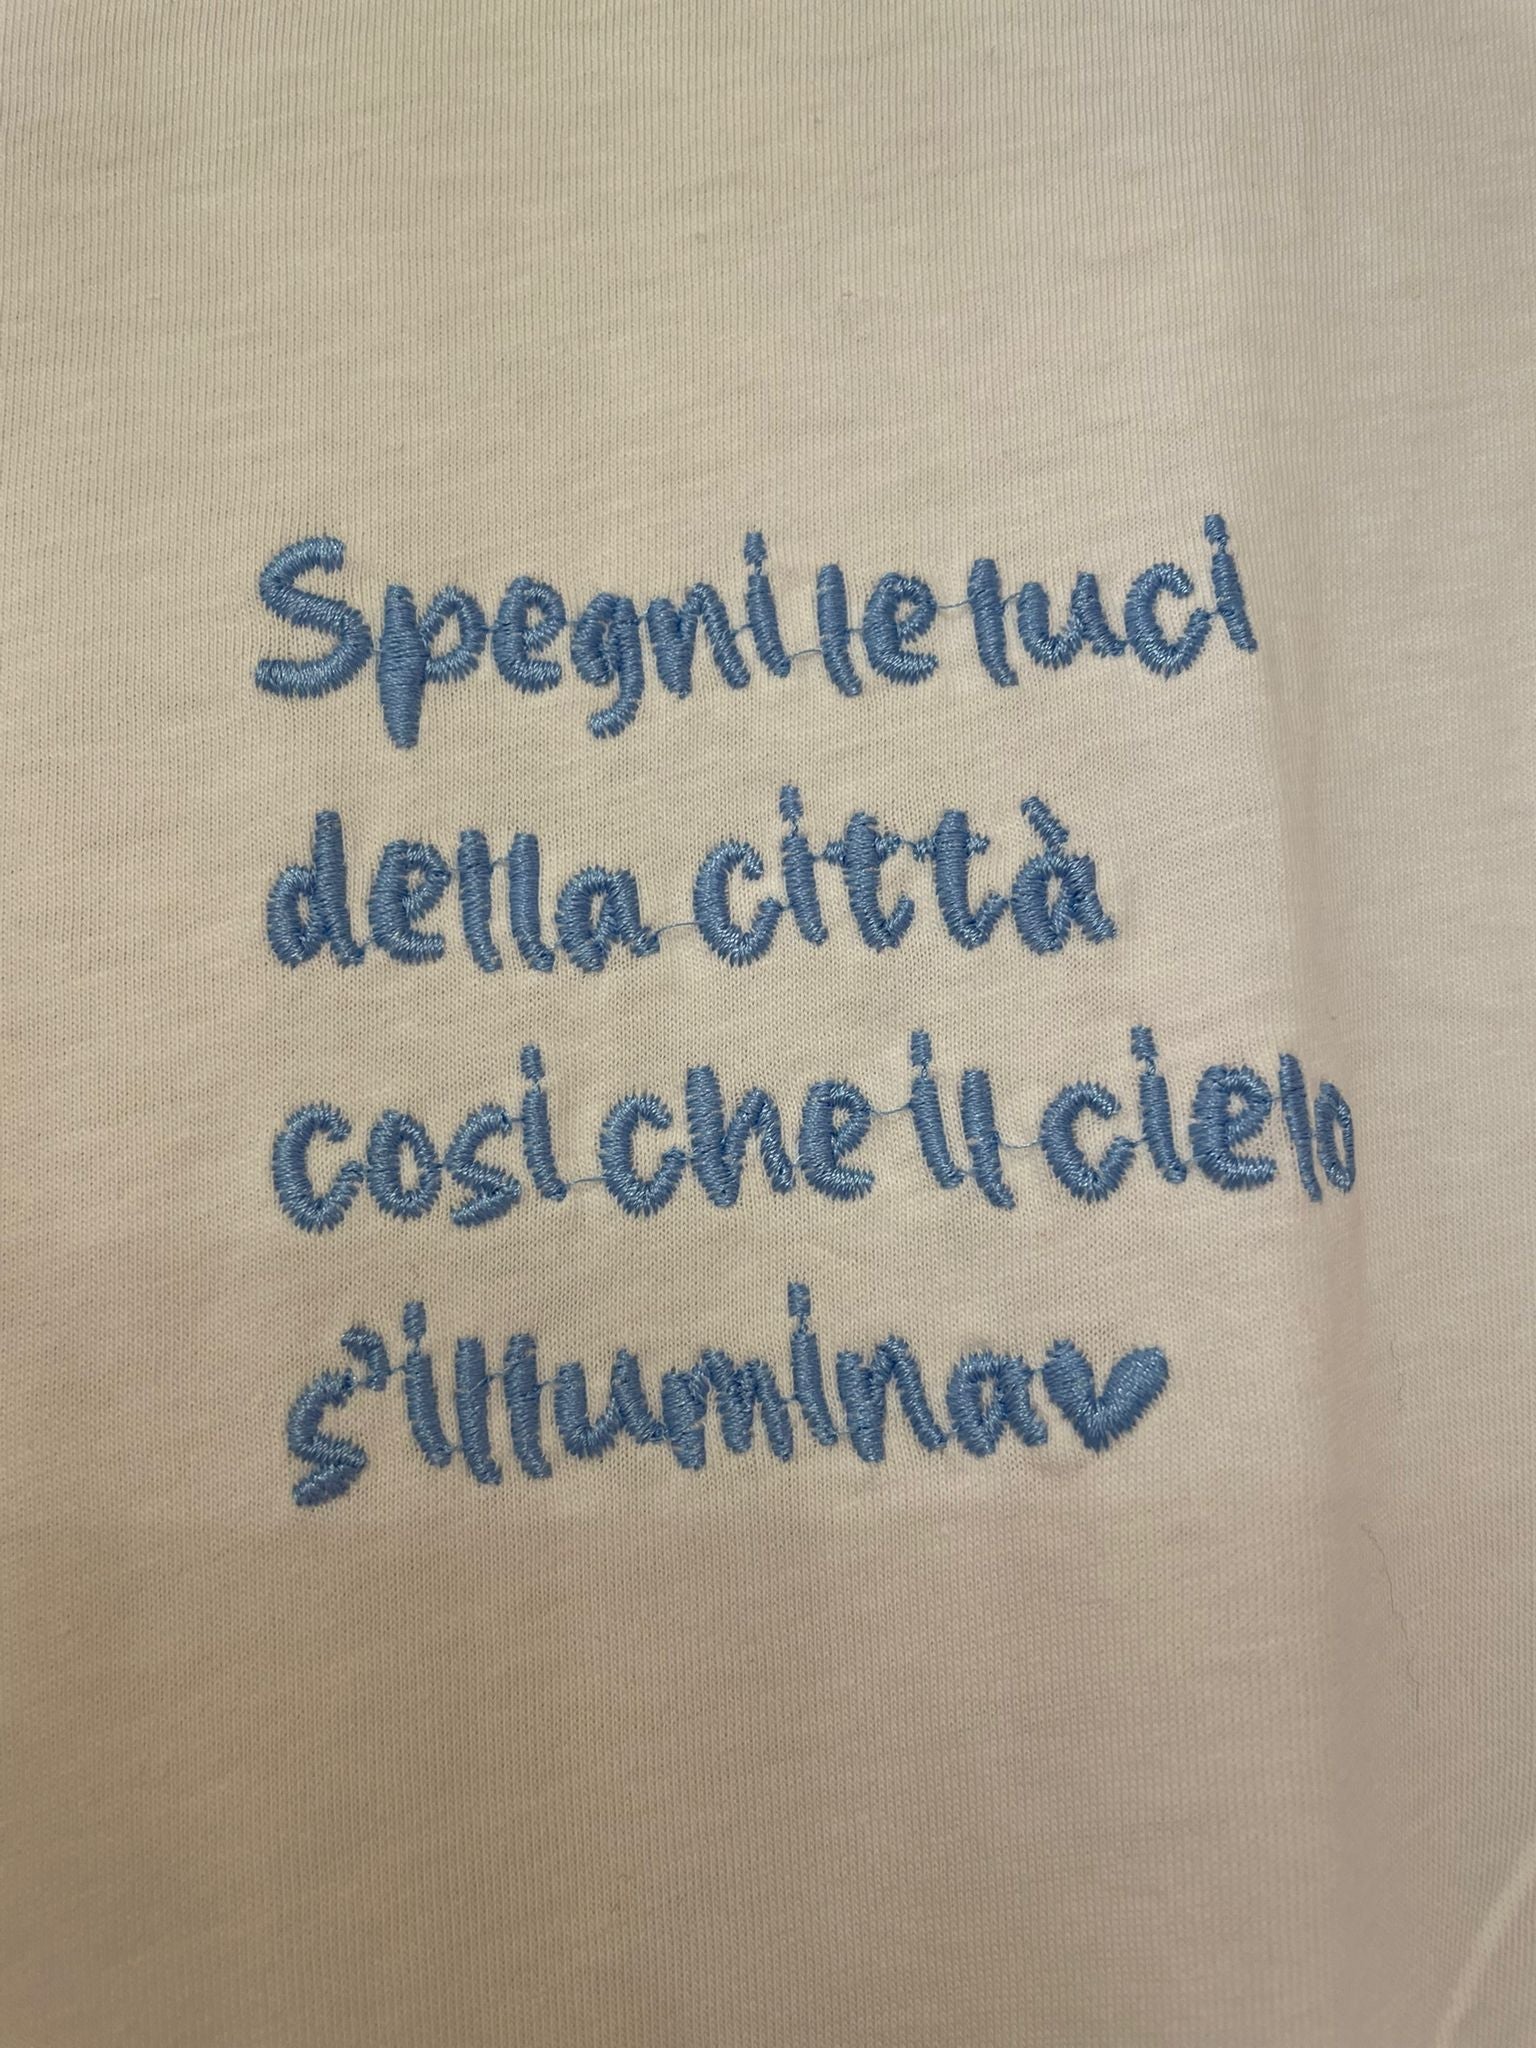 Spegni le luci
della città
cosi che il cielo
s'illumina